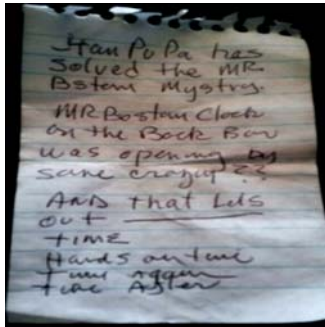 Stan PoPa has
solved the MR.
Bstan Mystry.
MR Bostan Clock
on the Back Bar
was opening by
sane crazy??
AND That Lets
out
TIME
Hands on
Time Again